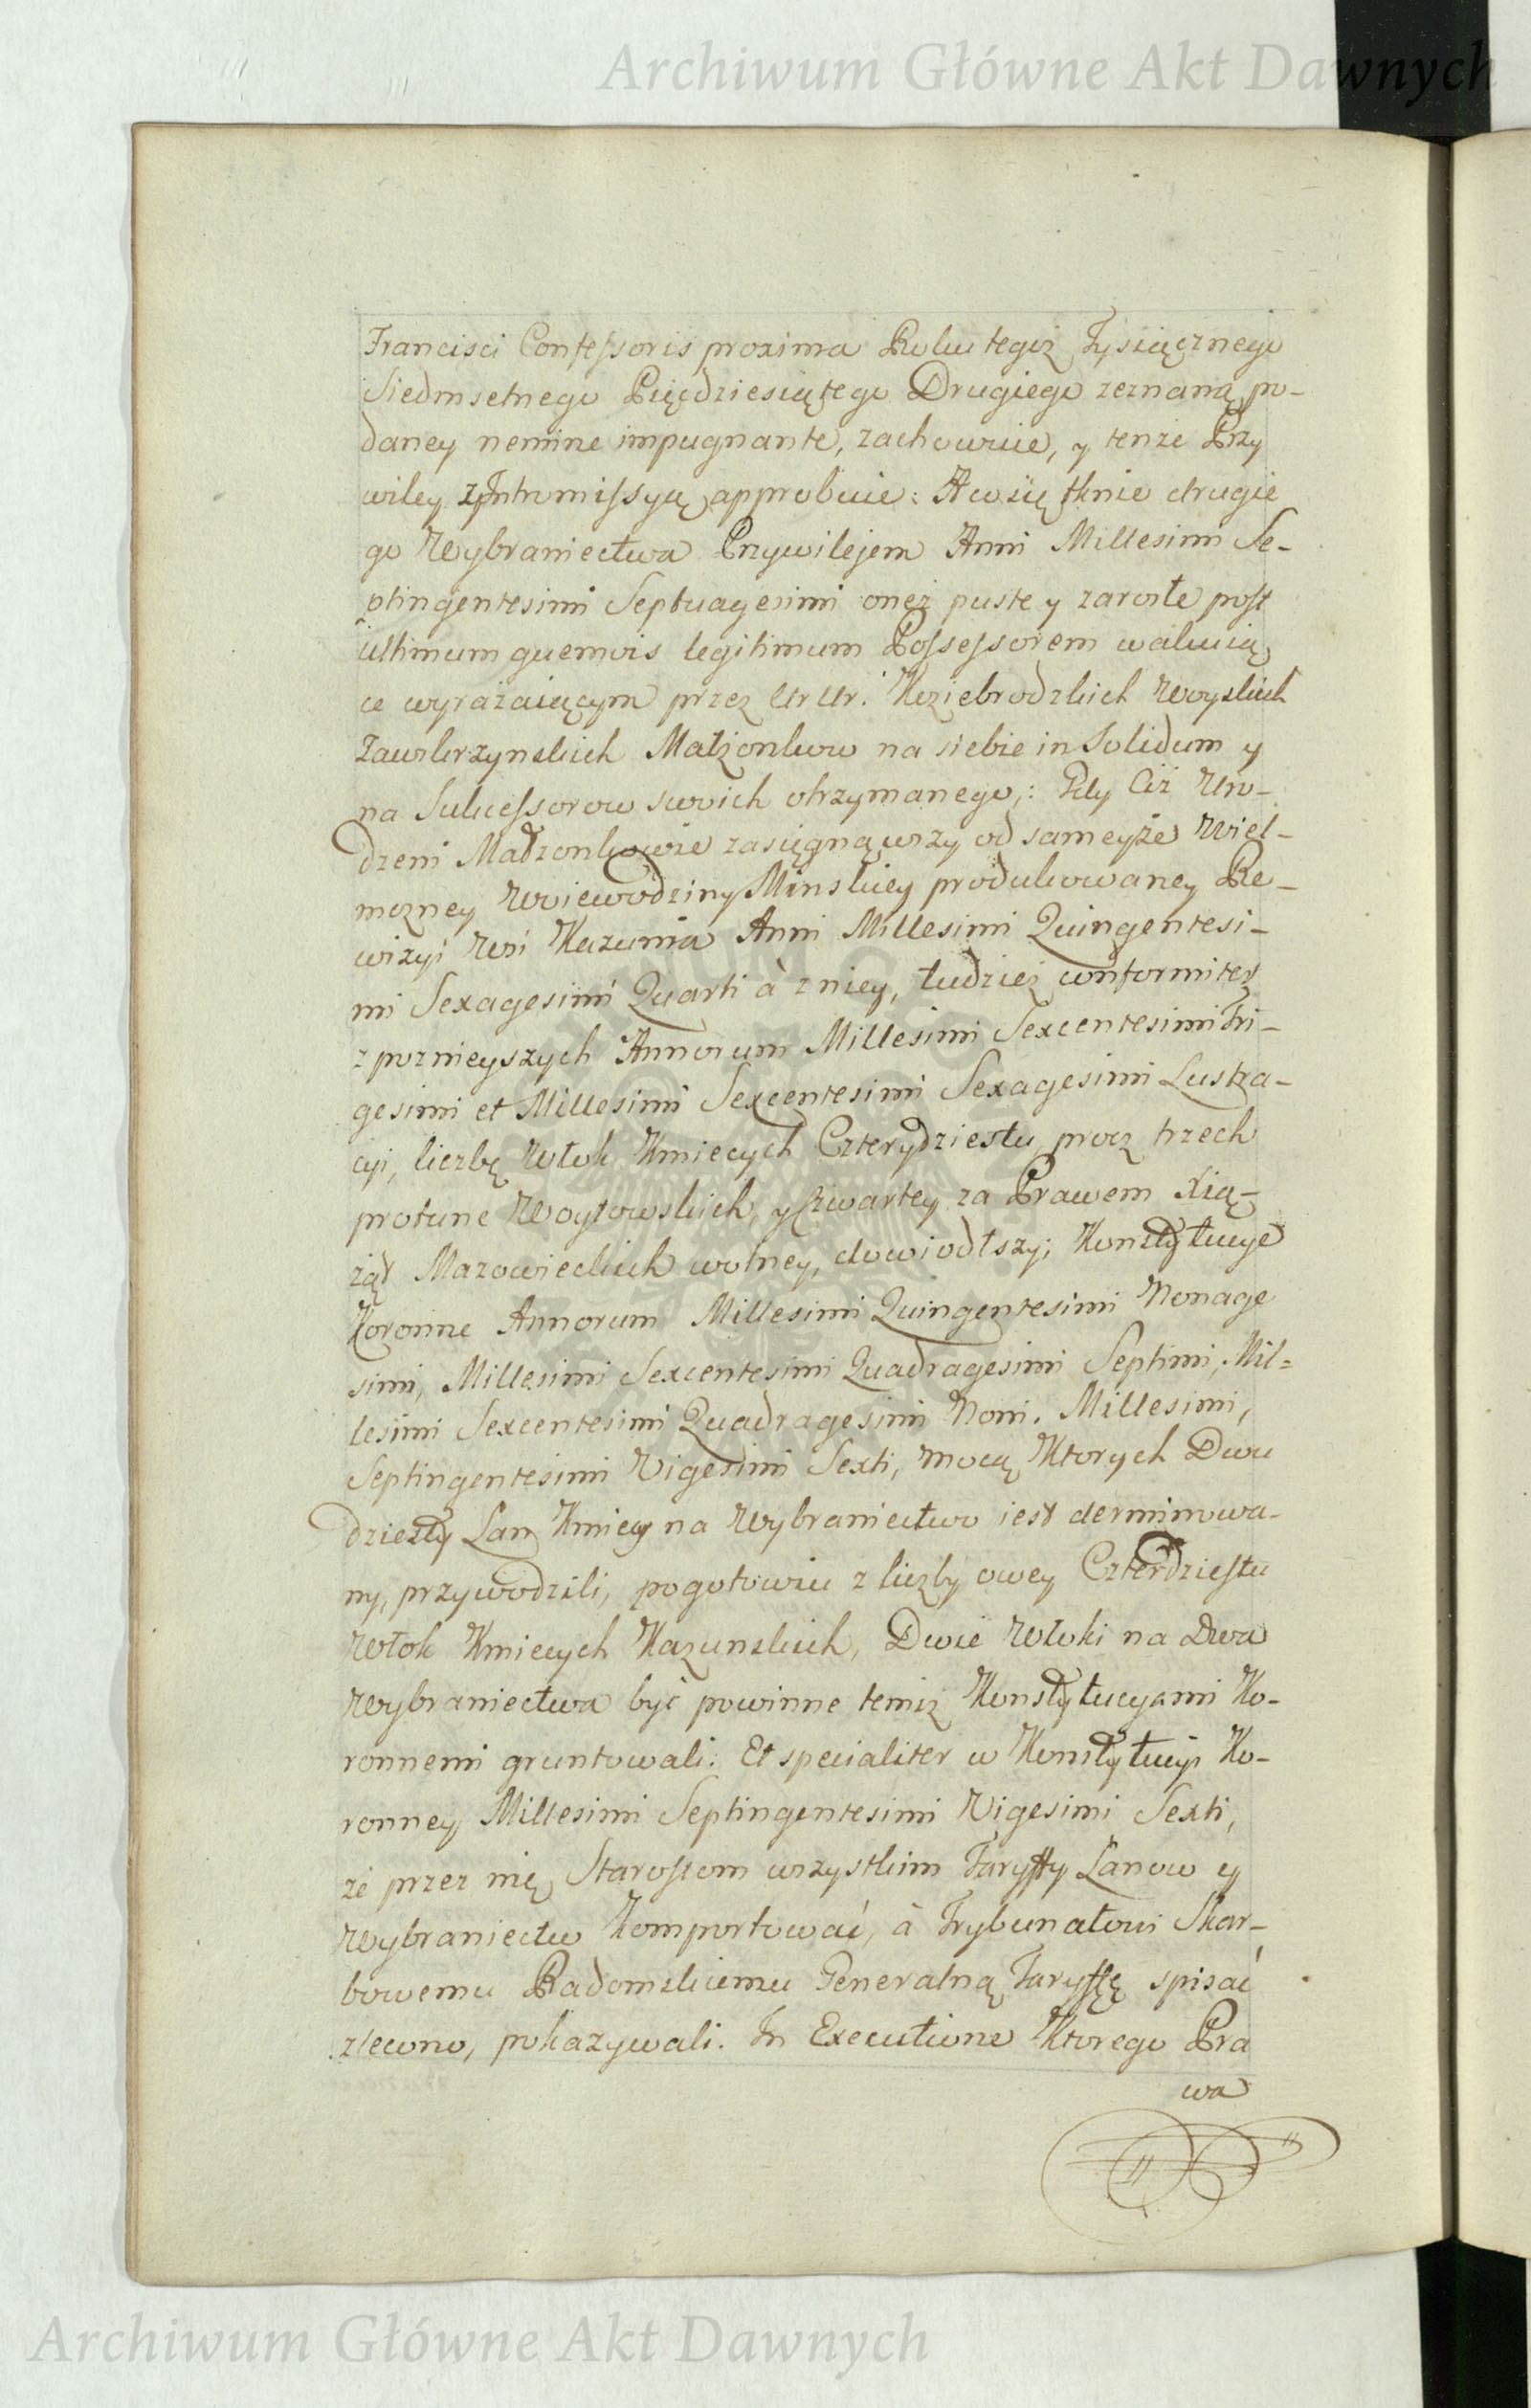 Archiwum Główne Akt Dawnych
Francisci Confessoris proxima Roku tegoż Tysiącznego
Siedmsetnego Pięćdziesiątego Drugiego zeznaną po-
daney nemine impugnante, zachowuie, y tenże Przy
wiley z Intromissyą approbuie: A co się tknie drugie
go Wybraniectwa Przywilejem Anni Millesimi Se-
ptingentesimi Septuagesimi oneż puste y zarosłe post
ultimum quemvis legitimum Possessorem wakuią
ce wyrażaiącym przez Ur Ur. Koziebrodzkich Woyskich
Zawkrzynskich Małżonkow na siebie in Solidum y
na Sukcessorow swoich otrzymanego,: Gdy Ciż Uro-
dzeni Małżonkowie zasięgnąwszy od sameyże Wiel-
możney Woiewodziny Minskiey produkowaney Re-
wizyi Wsi Kazunia Anni Millesimi Quingentesi-
mi Sexagesimi Quarti à z niey, tudzież conformiter
z poznieyszych Annorum Millesimi Sexcentesimi Tri-
gesimi et Millesimi Sexcentesimi Sexagesimi Lustra-
cyi, liczbę Włok Kmiecych Czterydziestu, procz trzech
protunc Woytowskich, y Czwartey za Prawem Xią-
żąt Mazowieckich wolney, dowiodłszy; Konstytucye
Koronne Annorum Millesimi Quingentesimi Nonage
simi, Millesimi Sexcentesimi Quadragesimi Septimi, Mil=
lesimi Sexcentesimi Quadragesimi Noni. Millesimi,
Septingentesimi Vigesimi Sexti, mocą Ktorych Dwu
dziesty Łan Kmiecy na Wybraniectwo iest derminowa-
ny, przywodzili, pogotowiu z liczby owey Czterdziestu
Włok Kmiecych Kazunskich, Dwie Włoki na Dwa
Wybraniectwa być powinne temiż Konstytucyami Ko-
ronnemi gruntowali: Et specialiter w Konstytucyi Ko-
ronney Millesimi Septingentesimi Vigesimi Sexti,
że przez nię Starostom wszystkim Taryffy Łanow y
Wybraniectw komportować, à Trybunałowi Skar-
bowemu Radomskiemu Generalną Taryffę spisać
zlecono, pokazywali. In Executione Ktorego Pra
wa
Archiwum Główne Akt Dawnych